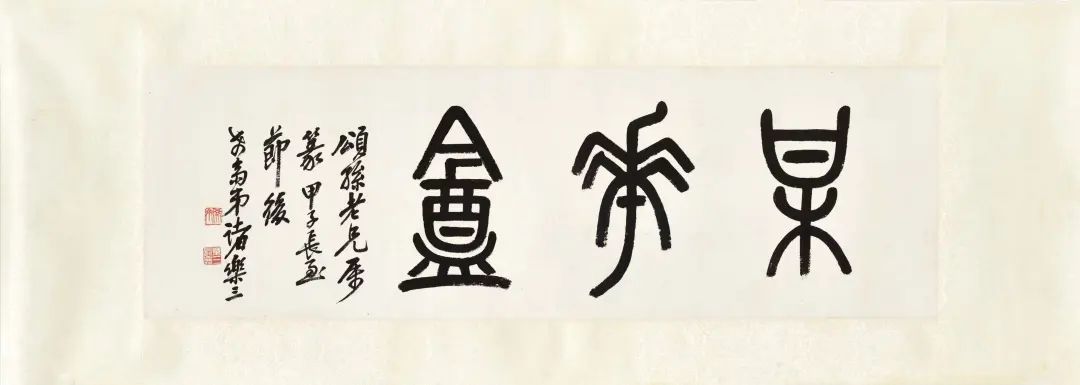 某華盦
頌孫老兄屬
篆甲子長至
節後
希翁弟諸樂三